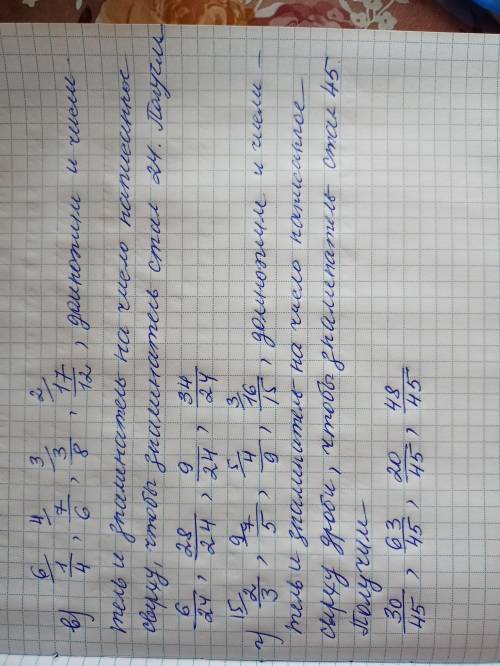 в) 6/ 1/4, 4/ 7/6, 3/ 3/8, 2/ 17/12, домножим и числи-
тель и знаменатель на число написанное
сверху, чтобы знаменатель стал 24. Получим
6/24, 28/24, 9/24, 34/24
г) 15/ 2/3, 9/ 7/5, 5/ 4/9, 3/ 16/15, домножим и числи-
тель и знаменатель на число написанное
сверху дроби, чтобы знаменатель стал 45.
Получим
30/45, 63/45, 20/45, 48/45